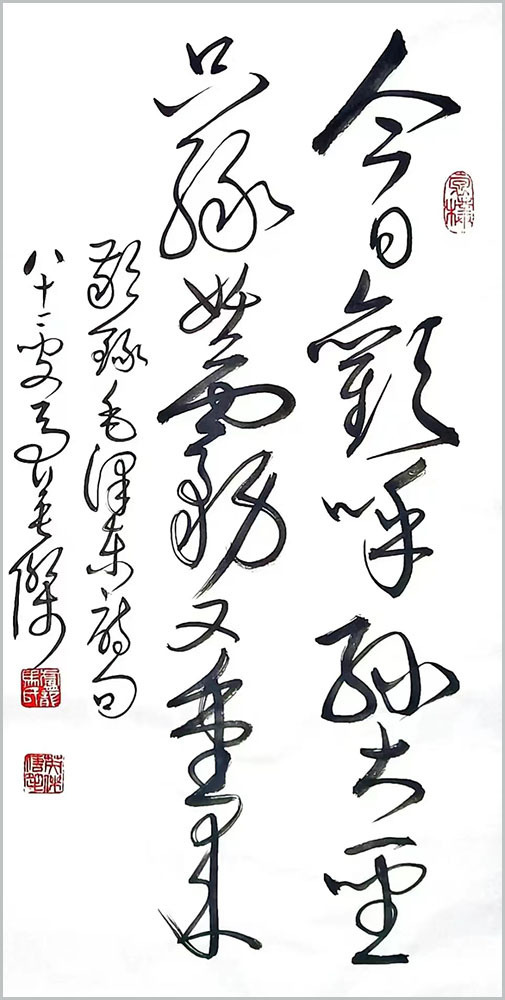 今日歡呼孫大聖
只緣妖霧又重來
敬錄毛澤東詩句
八十二叟馬英傑